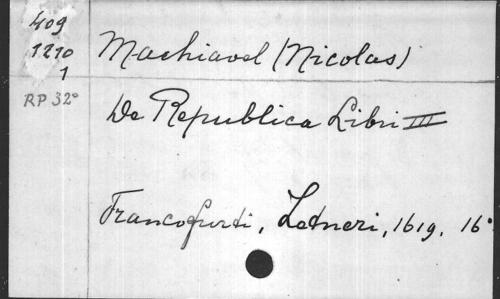 409
1210
1
Machiavel (Nicolas)
RP 32°
De Republica Libri III
Francofurti, Zetneri, 1619. 16°